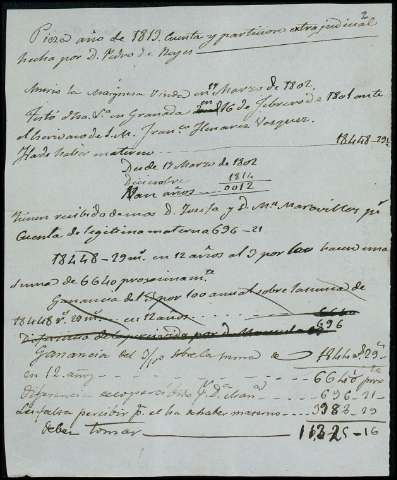 Pieza año de 1819. Cuenta y particion extrajudicial
hecha por D. Pedro de Reyes
Murio la Marquesa Viuda en Marzo de 1802
Testó dha Sra en Granada en 16 de Febrero de 1801 ante
el Escrivano de S. M. Franco Vazquez.
Haber materno 18448-29
Desde 17 Marzo de 1802
Diciembre 1814
Van años 0012
Tienen recibido de mas D. Josefa y D. Ma Maravillas pr
Cuenta de legitima materna 696-21
18448-29 ms. en 12 años al 3 por 100 hacen una
suma de 6640 proximamte
Ganancia del 3 por 100 anual sobre la suma de
18448 rs. 29 ms. en 12 años 6640
Diferencia de lo percibido por D. Manuela 696
Ganancia del 3 p% sobre la suma de 18448 29
en 12 años 6640
Diferencia percibido D. 696-21
Les falta percibir pr. el haber materno 3988-29
deben tomar 11325-16